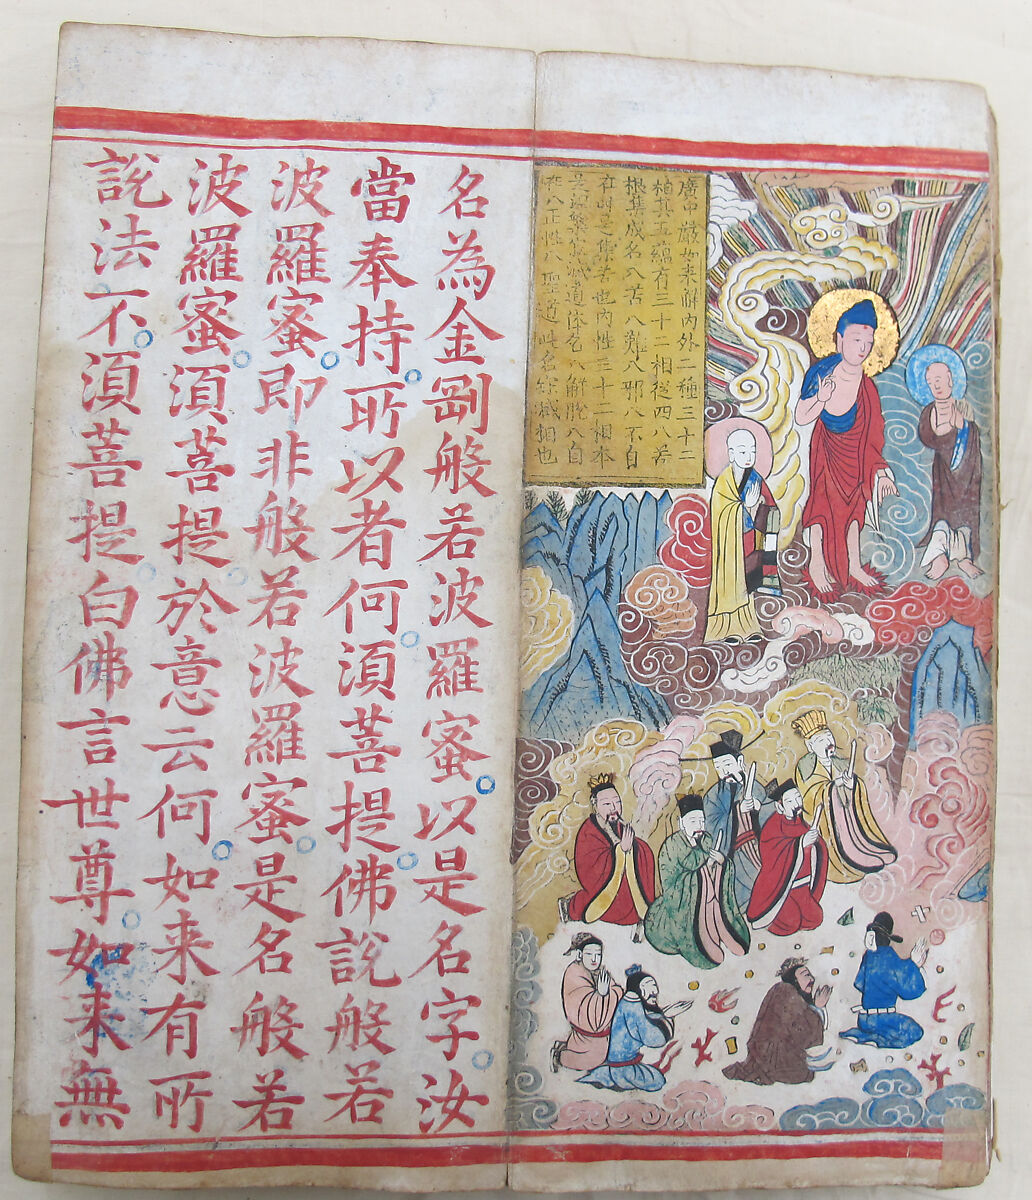 廣中嚴如來解內外二種三十二
其五蘊有三十二相從四八苦
根集成名八苦八難八邪八不自
在此是集苦也內性三十二相本
是涅槃寂滅道八解脫八自
在八正性八聖道此名寂滅相也
名為金剛般若波羅蜜。以是名字。汝
當奉持。所以者何。湏菩提。佛說般若
波羅蜜。即非般若波羅蜜。是名般若
波羅蜜。湏菩提。於意云何。如来有所
說法不。湏菩提白佛言世尊。如来無